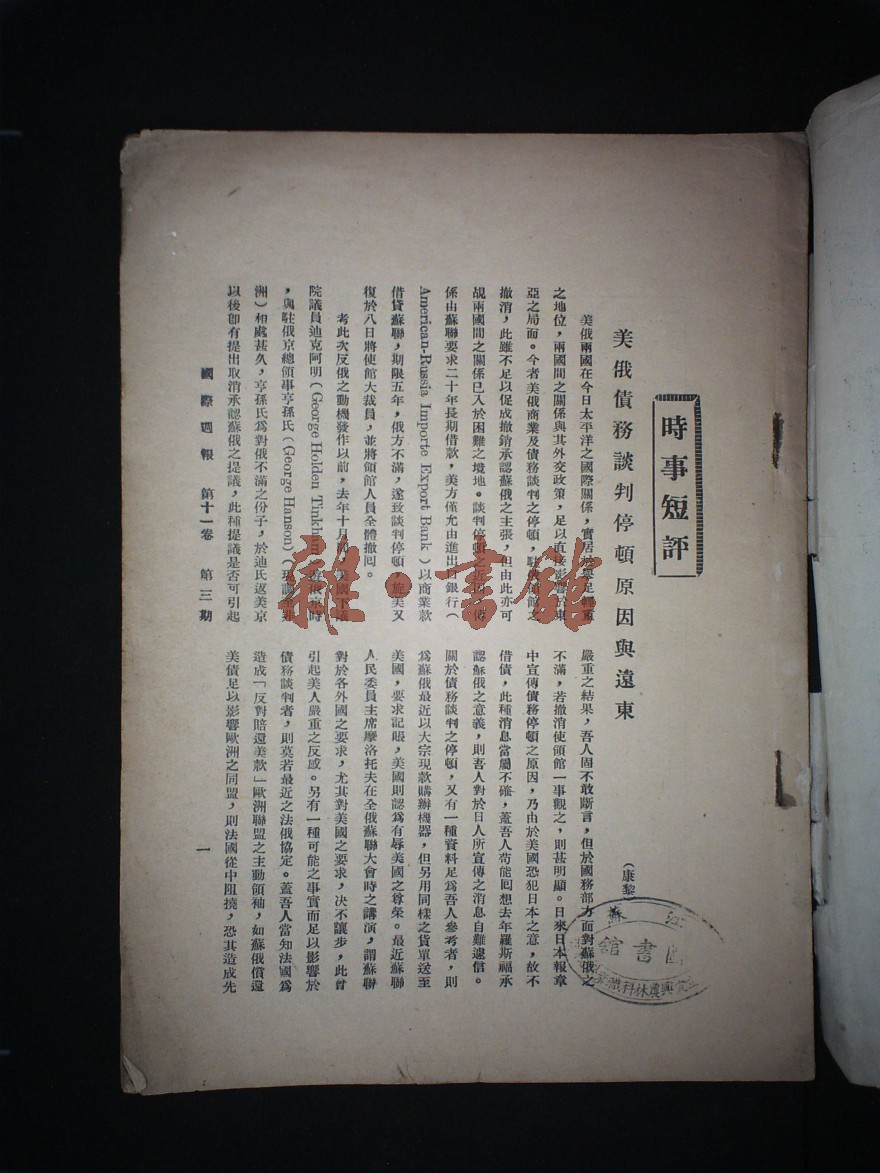 時事短評
美俄債務談判停頓原因與遠東
(康黎
美俄兩國在今日太平洋之國際關係，實居於舉足輕重
之地位，兩國間之關係與其外交政策，足以直接影響於東
亞之局面。今者美俄商業及債務談判之停頓，駐俄領館之
撤消，此雖不足以促成撤銷承認蘇俄之主張，但由此亦可
覘兩國間之關係已入於困難之境地。談判停頓之近因，傳
係由蘇聯要求二十年長期借款，美方僅允由進出口銀行（
American-Russia Importe Export Bank）以商業款
借貸蘇聯，期限五年，俄方不滿，遂致談判停頓，旋美又
復於八日將使館大裁員，並將領館人員全體撤回。
考此次反俄之動機發作以前，去年十月間，美國下議
院議員迪克阿明（George Holden Tinkham）遊俄京時
，與駐俄京總領事亨孫氏（George Hanson）（現調至非
洲）相處甚久，亨孫氏為對俄不滿之份子，於迪氏返美京
以後卽有提出取消承認蘇俄之提議，此種提議是否可引起
嚴重之結果，吾人固不敢斷言，但於國務部方面對蘇俄之
不滿，若撤消使領館一事觀之，則甚明顯。日來日本報章
中宣傳債務停頓之原因，乃由於美國恐犯日本之意，故不
借債，此種消息當屬不確，蓋吾人苟能回想去年羅斯福承
認蘇俄之意義，則吾人對於日人所宣傳之消息自難遽信。
關於債務談判之停頓，又有一種資料足為吾人參考者，則
為蘇俄最近以大宗現款購辦機器，但另用同樣之貨單送至
美國，要求記賬，美國則認為有辱美國之尊榮。最近蘇聯
人民委員主席摩洛托夫在全俄蘇聯大會時之講演，謂蘇聯
對於各外國之要求，尤其對美國之要求，決不讓步，此曾
引起美人嚴重之反感。另有一種可能之事實而足以影響於
債務談判者，則莫若最近之法俄協定。蓋吾人當知法國為
造成「反對賠還美款」歐洲聯盟之主動領袖，如蘇俄償還
美債足以影響歐洲之同盟，則法國從中阻撓，恐其造成先
國際週報 第十一卷 第三期
一
江蘇
圖書館
雜·書館